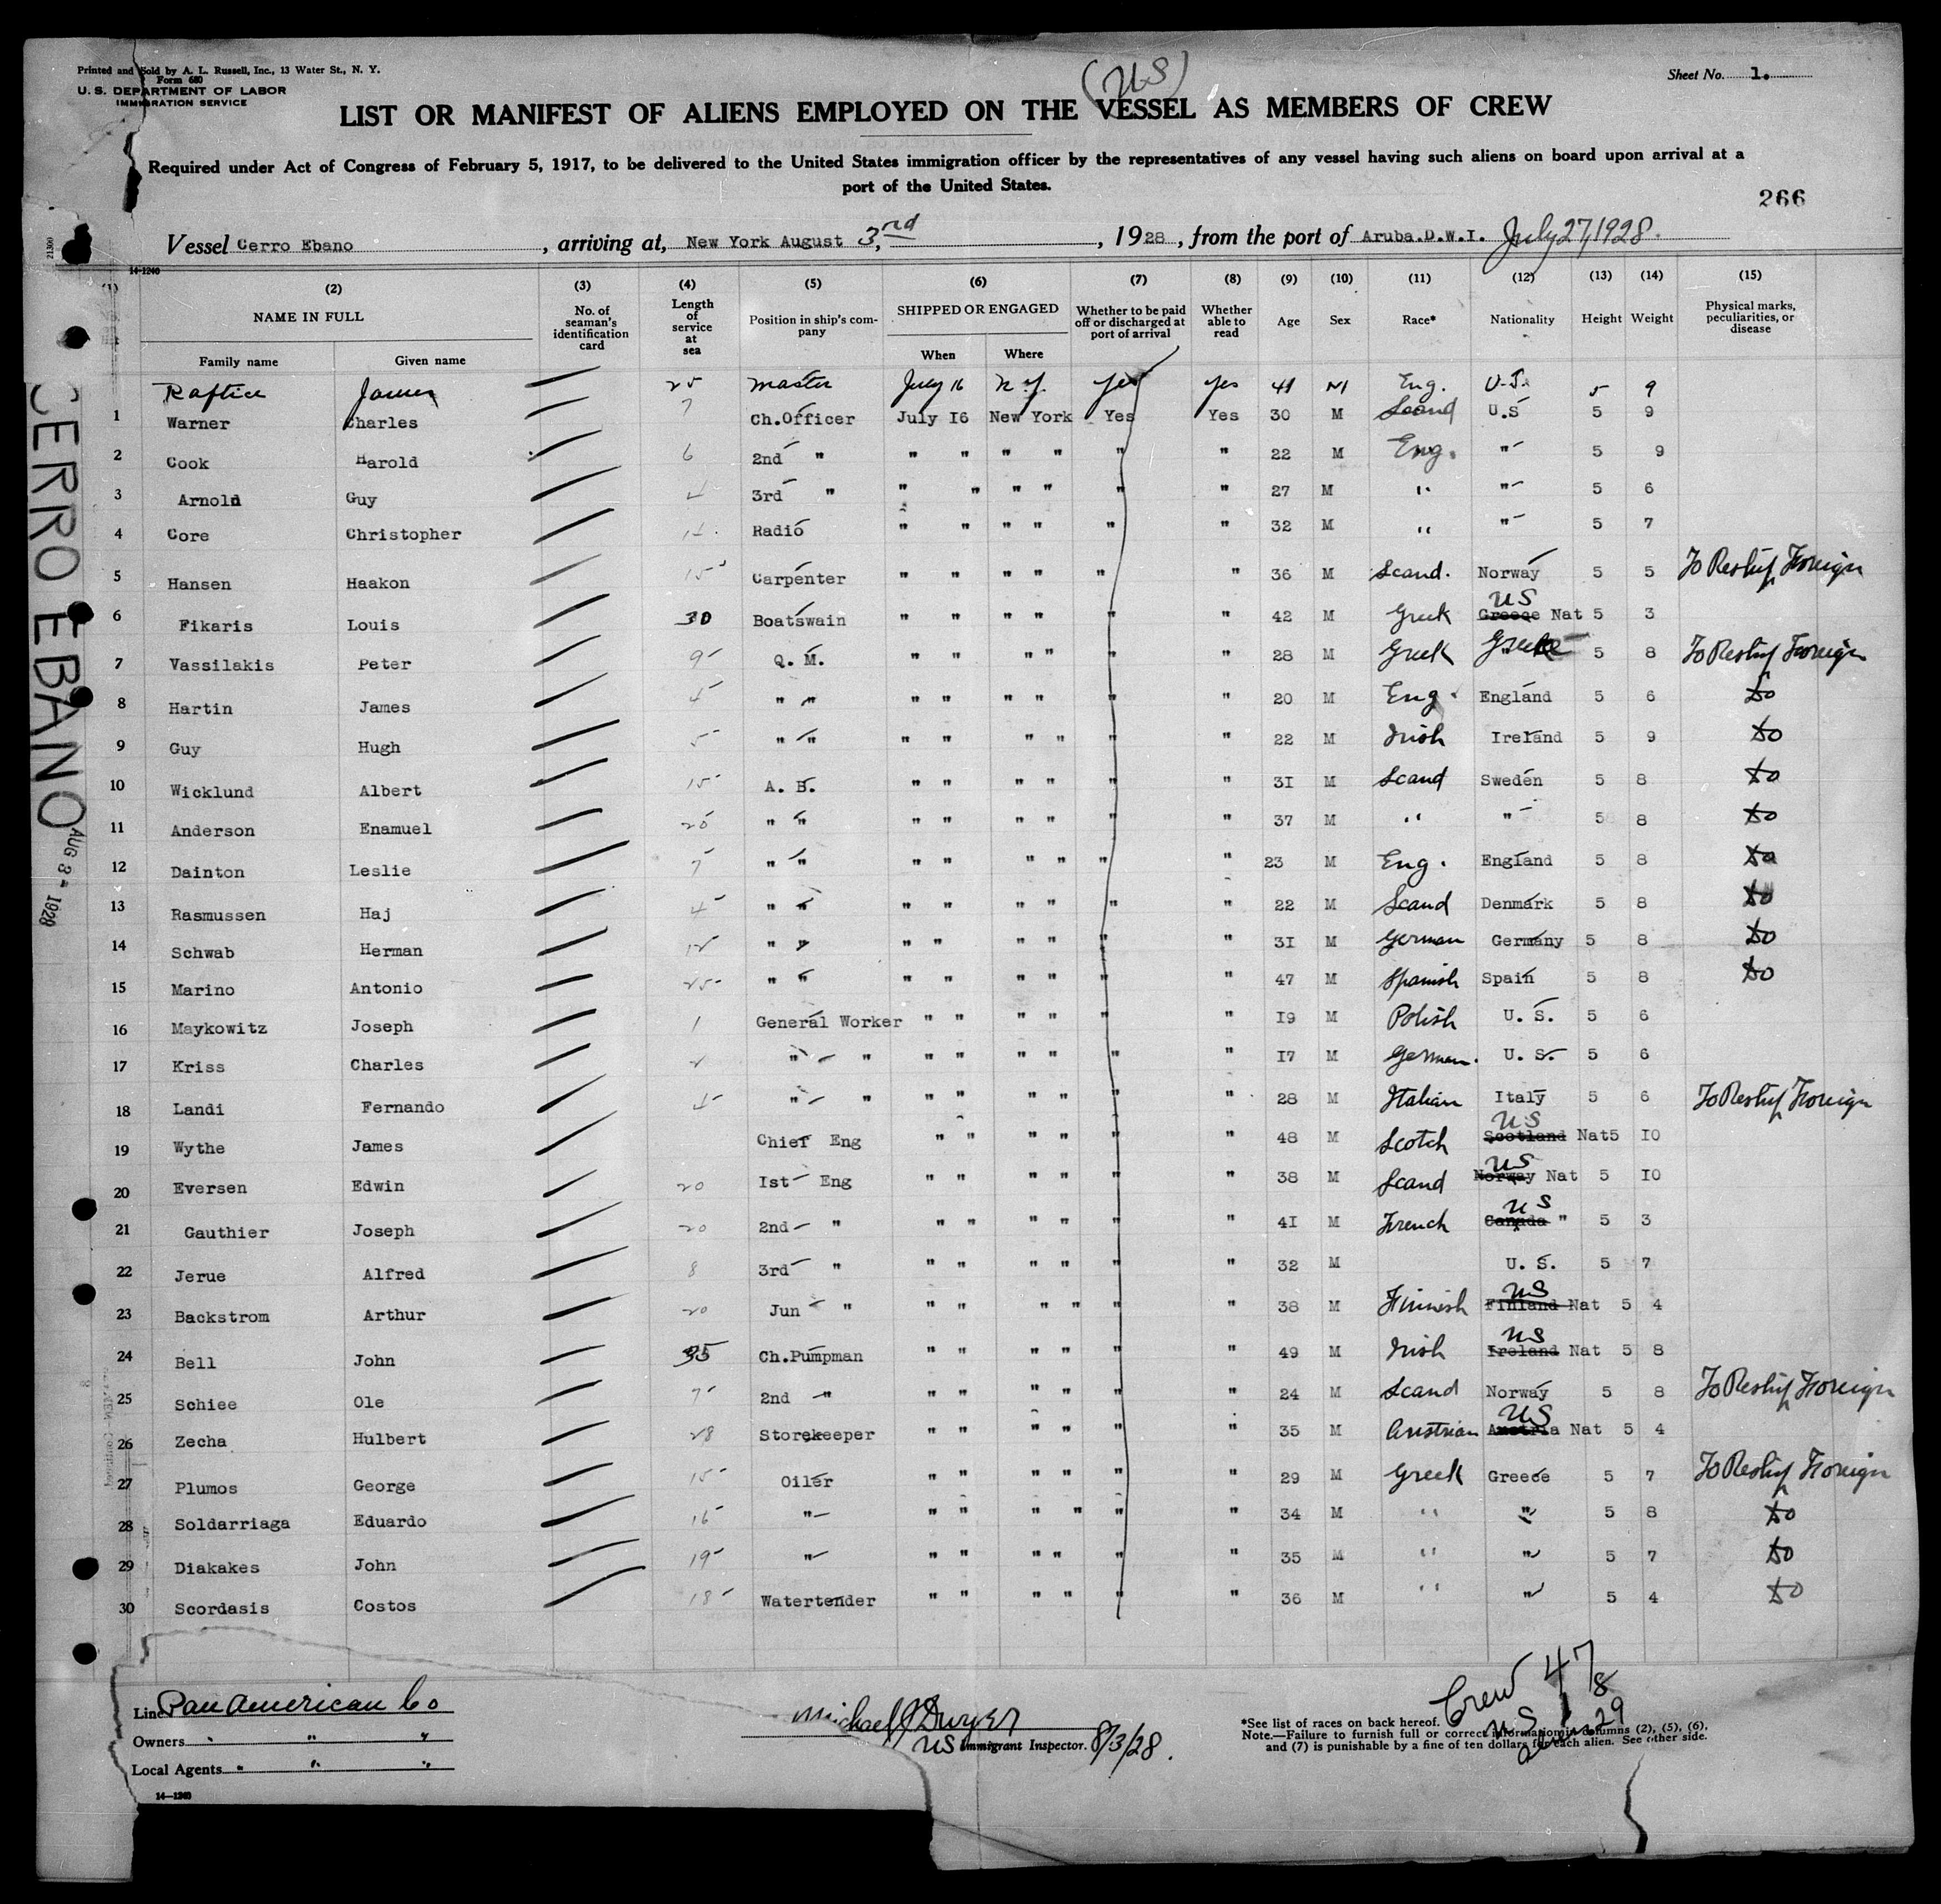 Printed and Sold by A. L. Russell, Inc., 13 Water St., N. Y.
Form 680
U. S. DEPARTMENT OF LABOR
IMMIGRATION SERVICE
(US)
Sheet No. 1.
LIST OR MANIFEST OF ALIENS EMPLOYED ON THE VESSEL AS MEMBERS OF CREW
Required under Act of Congress of February 5, 1917, to be delivered to the United States immigration officer by the representatives of any vessel having such aliens on board upon arrival at a
port of the United States.
266
Vessel Cerro Ebano, arriving at, New York August 3,rd, 1928, from the port of Aruba.D.W.I. July 27, 1928.
14-1240
(1) (2) (3) (4) (5) (6) (7) (8) (9) (10) (11) (12) (13) (14) (15)
NAME IN FULL No. of seaman's identification card Length of service at sea Position in ship's company SHIPPED OR ENGAGED Whether to be paid off or discharged at port of arrival Whether able to read Age Sex Race* Nationality Height Weight Physical marks, peculiarities, or disease
Family name Given name When Where
James 25 Master July 16 N.Y. Yes Yes 41 M Eng. U.S. 5 9
1 Warner Charles 7 Ch.Officer July 16 New York Yes Yes 30 M Scand U.S 5 9
2 Cook Harold 6 2nd " " " " " " " 22 M Eng. " 5 9
3 Arnold Guy 3rd " " " " " " " 27 M " " 5 6
4 Core Christopher Radio " " " " " " 32 M " " 5 7
5 Hansen Haakon 15 Carpenter " " " " " " 36 M Scand. Norway 5 5 To Reship Foreign
6 Fikaris Louis 30 Boatswain " " " " " " 42 M Greek US Greece Nat 5 3
7 Vassilakis Peter 9 Q. M. " " " " " " 28 M Greek Greece 5 8 To Reship Foreign
8 Hartin James 5 " " " " " " " " 20 M Eng. England 5 6 Do
9 Guy Hugh 5 " " " " " " " " 22 M Irish Ireland 5 9 Do
10 Wicklund Albert 15 A. B. " " " " " " 31 M Scand Sweden 5 8 Do
11 Anderson Enamuel 20 " " " " " " " " 37 M " " 5 8 Do
12 Dainton Leslie 7 " " " " " " " " 23 M Eng. England 5 8 Do
13 Rasmussen Haj 4 " " " " " " " " 22 M Scand Denmark 5 8 Do
14 Schwab Herman 12 " " " " " " " " 31 M German Germany 5 8 Do
15 Marino Antonio 25 " " " " " " " " 47 M Spanish Spain 5 8 Do
16 Maykowitz Joseph 1 General Worker " " " " " " 19 M Polish U. S. 5 6
17 Kriss Charles " " " " " " " " 17 M German. U. S. 5 6
18 Landi Fernando " " " " " " " " 28 M Italian Italy 5 6 To Reship Foreign
19 Wythe James Chief Eng " " " " " " 48 M Scotch US Scotland Nat 5 10
20 Eversen Edwin 20 Ist Eng " " " " " " 38 M Scand US Norway Nat 5 10
21 Gauthier Joseph 20 2nd " " " " " " " 41 M French US Canada " 5 3
22 Jerue Alfred 8 3rd " " " " " " " 32 M U. S. 5 7
23 Backstrom Arthur 20 Jun " " " " " " " 38 M Finnish US Finland Nat 5 4
24 Bell John 35 Ch.Pumpman " " " " " " 49 M Irish US Ireland Nat 5 8
25 Schiee Ole 7 2nd " " " " " " " 24 M Scand Norway 5 8 To Reship Foreign
26 Zecha Hulbert 28 Storekeeper " " " " " " 35 M Austrian US Austria Nat 5 4
27 Plumos George 15 Oiler " " " " " " 29 M Greek Greece 5 7 To Reship Foreign
28 Soldarriaga Eduardo 16 " " " " " " " 34 M " " 5 8 Do
29 Diakakes John 19 " " " " " " " 35 M " " 5 7 Do
30 Scordasis Costos 18 Watertender " " " " " " 36 M " " 5 4 Do
CERRO EBANO
AUG 3 - 1928
21300
Line Pan American Co
Owners " " "
Local Agents " " "
14—1240
Michael J Dwyer
US Immigrant Inspector. 8/3/28.
Crew 47
US 18
29
*See list of races on back hereof.
Note.—Failure to furnish full or correct information in columns (2), (5), (6),
and (7) is punishable by a fine of ten dollars for each alien. See other side.